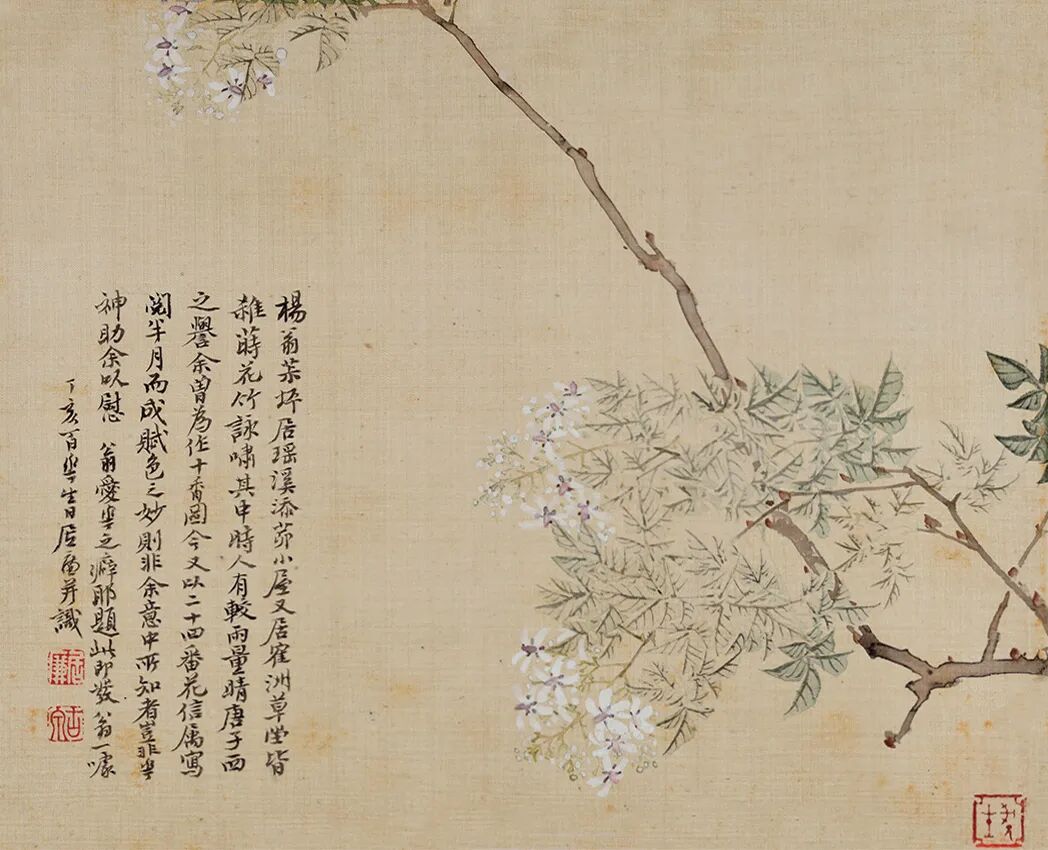 楊翁茮坪居瑶溪添茆小屋又居隺洲草堂皆
雜蒔花竹詠嘯其中時人有較雨量晴唐子西
之譽余曾為作十香圖今又以二十四番花信属寫
閱半月而成賦色之妙則非余意中所知者豈非華
神助余以慰 翁愛華之癖耶題此即發 翁一噱
丁亥百華生日居廉并識
居廉
古泉